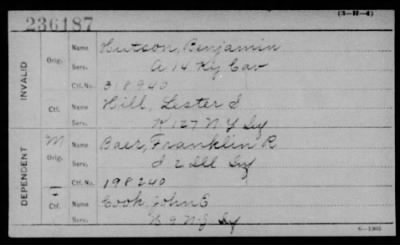 (3-H-4)
236187
INVALID
Orig. Name Hutson, Benjamin
Serv. A 14 Ky Cav
Ctf. No. 318940
Ctf. Name Hill, Lester
Serv. K 127 N Y Inf
DEPENDENT
M Orig. Name Baer, Franklin R
Serv. I 2 Del Inf
Ctf. No. 198240
Ctf. Name Cook, John E
Serv. B 9 N J Inf